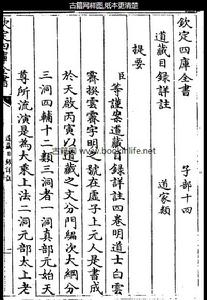 古籍网样图,纸本更清楚
欽定四庫全書
子部十四
道藏目録詳註
道家類
提要
臣等謹案道藏目録詳註四卷明道士白雲
霽撰雲霽字明之號在虛子上元人是書成
於天啟丙寅以道藏之文分門編次大綱分
三洞四輔十二類三洞者一洞真部元始天
尊所流演是為大乘上法一洞元部太上老
欽定四庫全書
道藏目録詳註
一